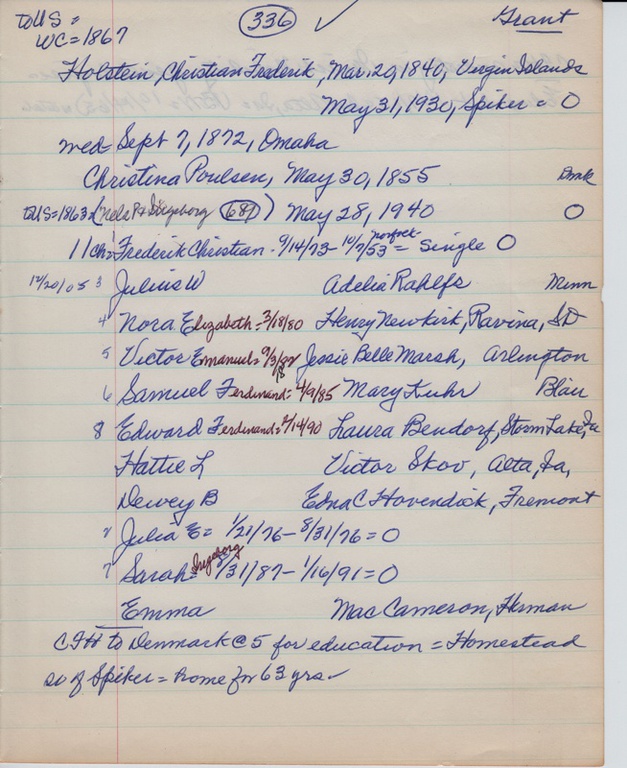 to US = 336 ✓ Grant
WC=1867
Holstein, Christian Frederik, Mar. 20, 1840, Virgin Islands
May 31, 1930, Spiker = O
med Sept 7, 1872, Omaha
Christina Poulsen, May 30, 1855 Dmk
to US=1863 = (Nels P & Ingeborg 687) May 28, 1940 O
11 ch = 1 Frederik Christian - 9/14/73 - 10/7/53 Norfolk = Single O
12/20/05 3 Julius W Adelia Rahlfs Minn
4 Nora Elizabeth = 3/18/80 Henry Newkirk, Ravina, SD
5 Victor Emanuel = 9/3/82 Jessie Belle Marsh, Arlington
6 Samuel Ferdinand = 4/9/85 Mary Kuhr Blair
8 Edward Ferdinand = 2/14/90 Laura Bendorf, Storm Lake, Ia
Hattie L Victor Skov, Alta, Ia,
Dewey B Edna C Hovendick, Fremont
2 Julia E = 1/21/76 - 8/31/76 = O
7 Sarah Ingeborg = 8/31/87 - 1/16/91 = O
Emma Mac Cameron, Herman
CFH to Denmark @ 5 for education = Homestead
so of Spiker = home for 63 yrs. ✓